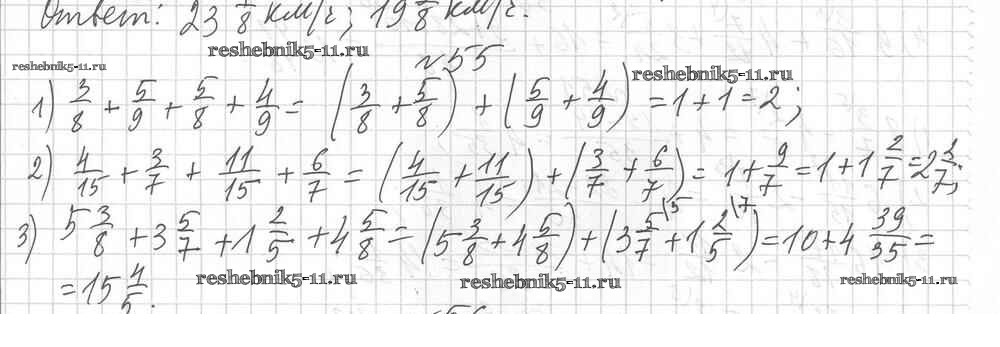 Ответ: 23 /8 км/ч; 19 /8 км/ч.
reshebnik5-11.ru
№55
reshebnik5-11.ru
reshebnik5-11.ru
1) 3/8 + 5/9 + 5/8 + 4/9 = (3/8 + 5/8) + (5/9 + 4/9) = 1 + 1 = 2;
2) 4/15 + 3/7 + 11/15 + 6/7 = (4/15 + 11/15) + (3/7 + 6/7) = 1 + 9/7 = 1 + 1 2/7 = 2 2/7;
3) 5 3/8 + 3 5/7 + 1 2/5 + 4 5/8 = (5 3/8 + 4 5/8) + (3 5/7 \5 + 1 2/5 \7) = 10 + 4 39/35 =
= 15 4/5.
reshebnik5-11.ru
reshebnik5-11.ru
reshebnik5-11.ru